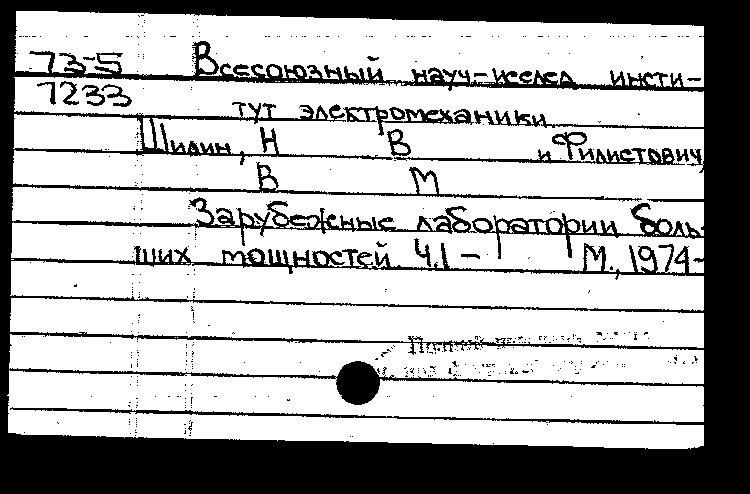 73-5 Всесоюзный науч-исслед инсти-
7233 тут электромеханики
Шилин, Н В и Филистович,
В М
Зарубежные лаборатории боль-
ших мощностей Ч.1 - М., 1974-